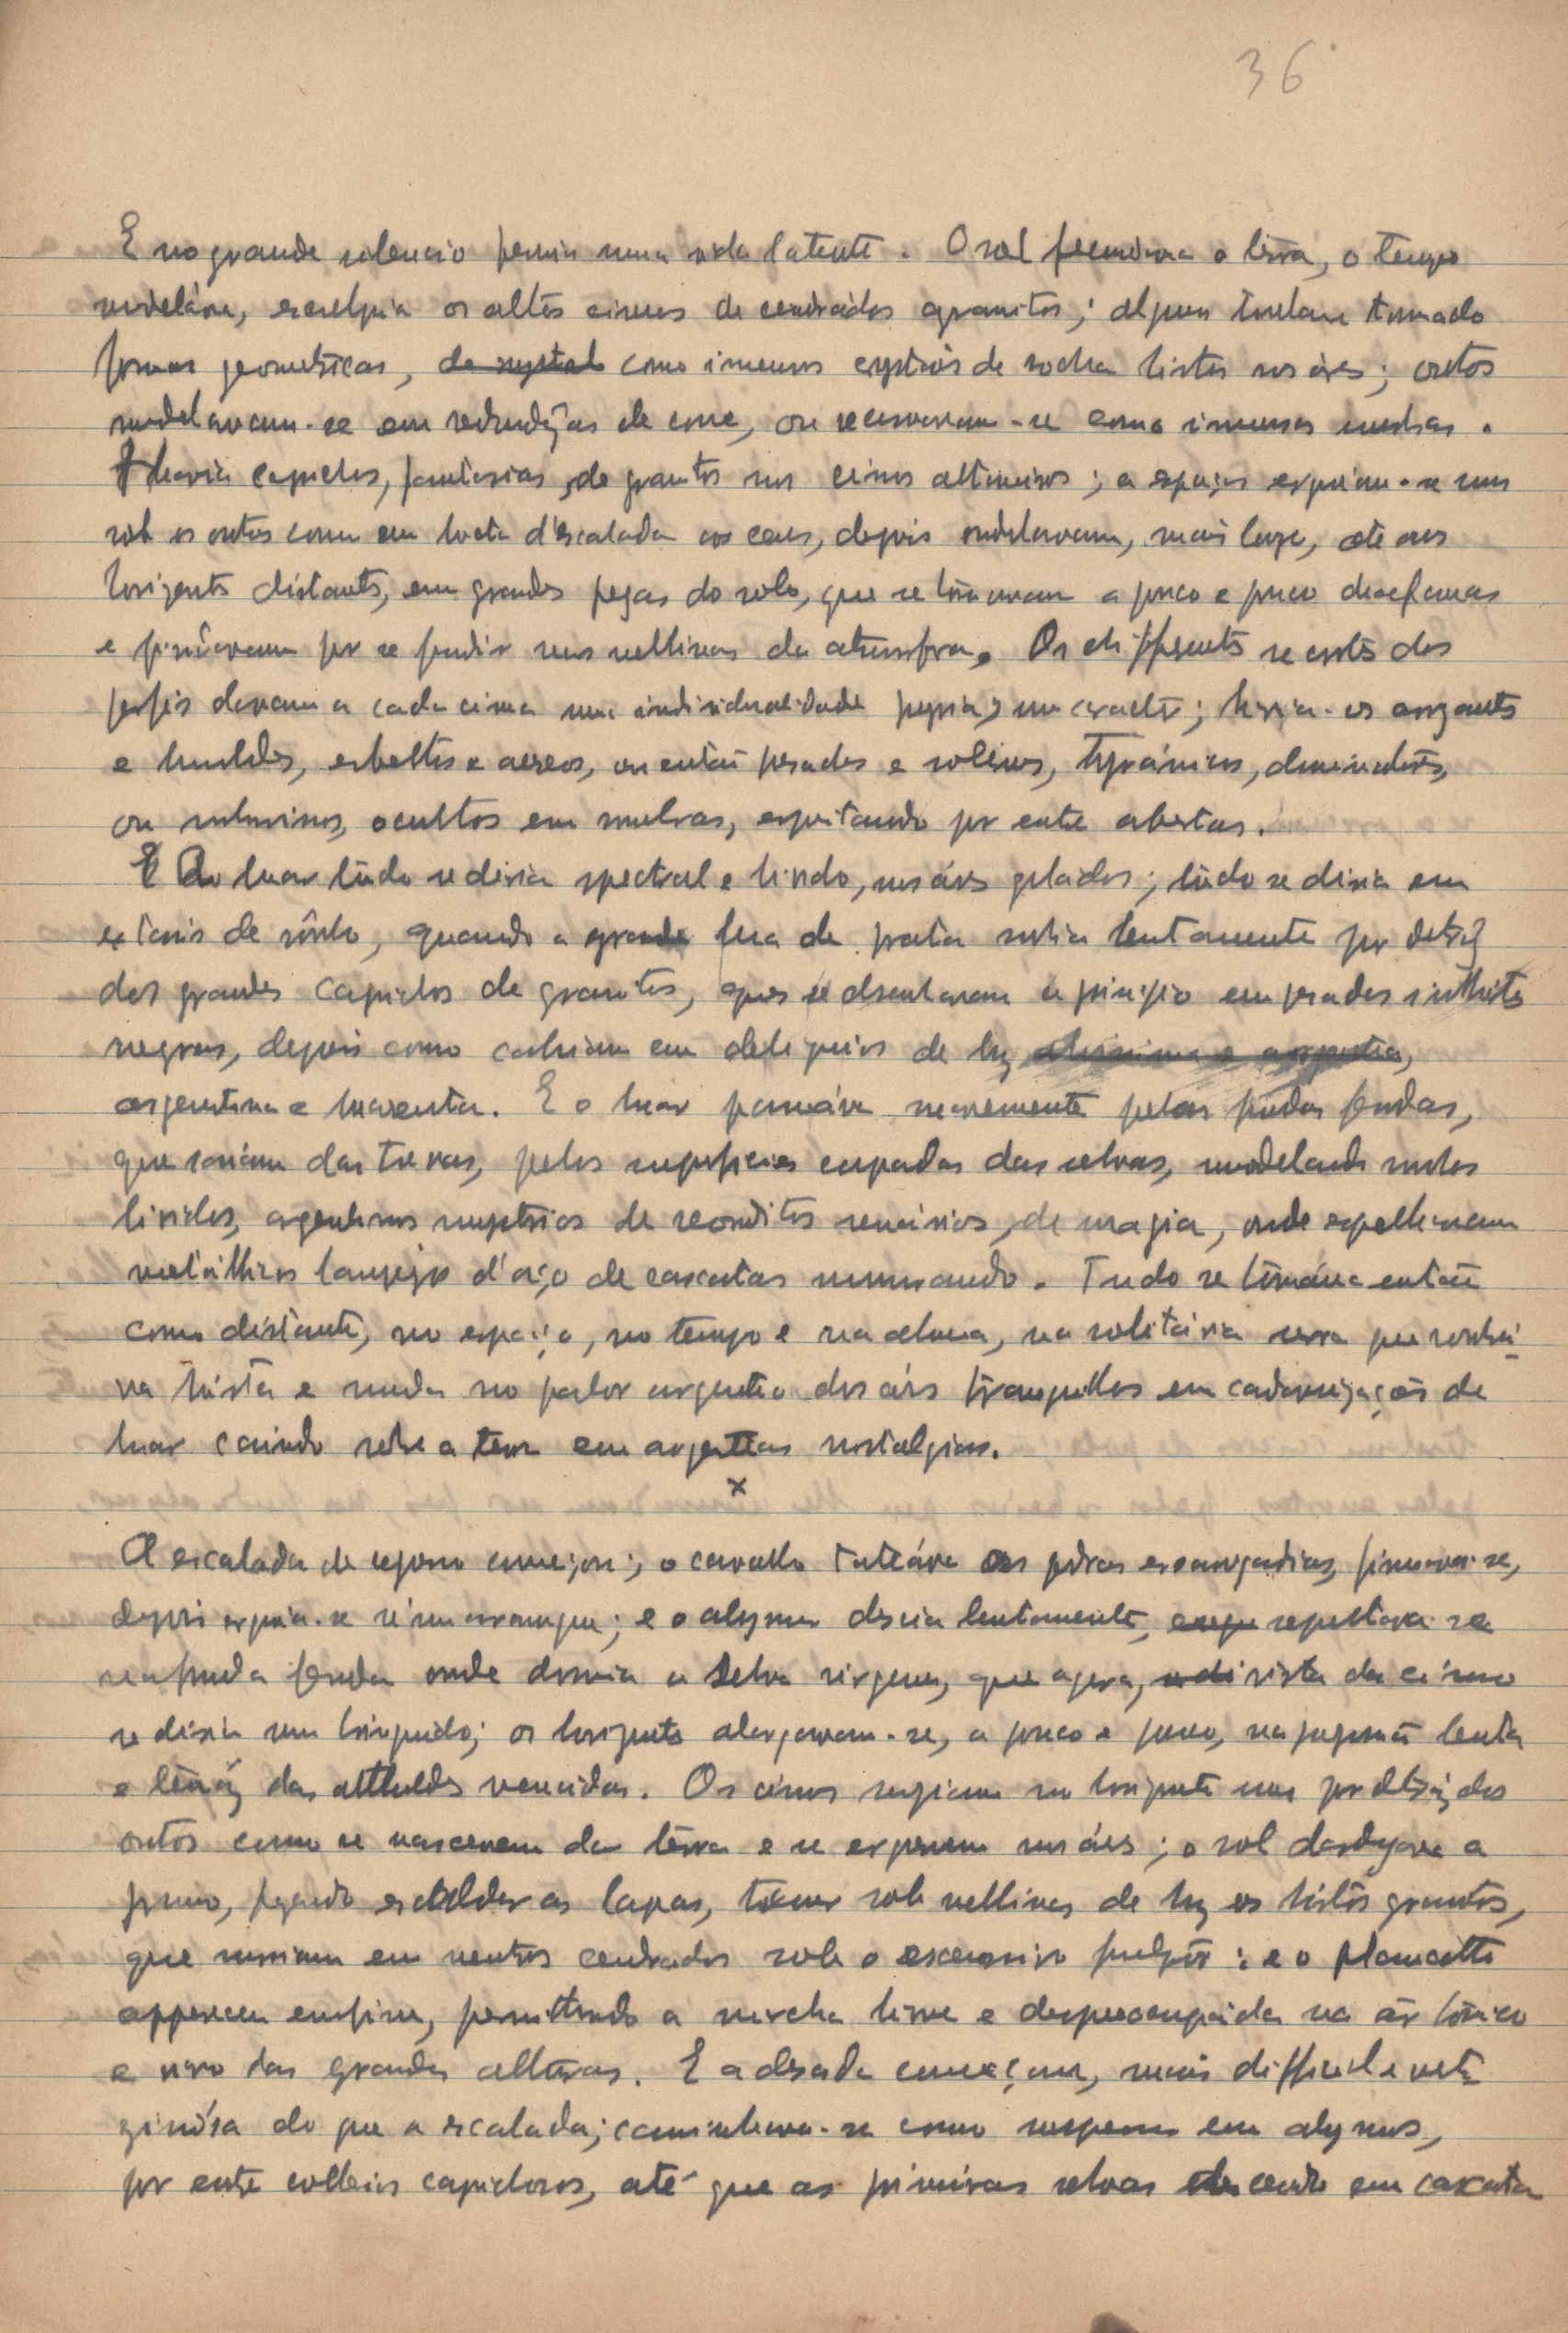 36
E no grande silencio fremia uma vida latente. O sol fecundava a terra, o tempo
modeláva, esculpia os altos cimos de cendrados granitos; alguns tinham tomado
formas geometricas, de crystal como imensos crystáes de rocha listos nos áres; outros
modelavam-se em redondezas de cone, ou recurvavam-se como imensas conchas.
Havia caprichos, fantasias, de granitos nos cimos altaneiros; a espaços erguiam-se uns
sob os outros como em lucta d'escalada aos ceus, depois ondulavam, mais longe, até aos
horizontes distantes, em grandes pregas do solo, que se tornavam a pouco e pouco diaefanas
e findavam por se fundir nas neblinas da atmosfera. Os differents recortes dos
perfis davam a cada cima uma individualidade propria, um caracter; havia-os arrogantes
e humildes, esbeltos e aereos, ou então pesados e solenes, tyránicos, dominadores,
ou soturnos, ocultos em sombras, espreitando por entre abertas.
E Ao luar tudo se diria spectral e lindo, nos áres gelados; tudo se diria em
extasis de sonho, quando a grande lua de prata subia lentamente por detraz
dos grandes caprichos de granitos, que se desenhavam a principio em pesadas silhuetas
negras, depois como cahiam em deliquios de luz
argentina e luarenta. E o luar passeáva suavemente pelas fundas fendas,
que saiam das trevas, pelas superficies crispadas das selvas, modelando vultos
lividos, argentinos mysterios de reconditos scenarios, de magia, onde espelhavam
metállicos lampejos d'aço de cascatas murmurando. Tudo se tornáva então
como distante, no espaço, no tempo e na alma, na solitária serra que sonhá-
va triste e muda no palor argenteo dos áres tranquillos em cadaverizações de
luar caindo sobre a terra em argenteas nostalgias.
x
A escalada de reposo começou; o cavallo tateáva as pedras escorregadias, firmava-se,
depois erguia-se n'um arranque; e o abysmo descia lentamente, sepultava-se
na funda fenda onde dormia a Selva virgem, que agora, vista da cimo
se diria um brinquedo; os horizontes alargavam-se, a pouco e pouco, na progressão lenta
e tenáz das altitudes vencidas. Os cimos surgiam no horizonte uns por detráz dos
outros como se nascessem da terra e se erguessem nos áres; o sol dardejava a
prumo, fazendo escaldar as lapas, tremer sob neblinas de luz os tristes granitos,
que sumiam em neutros cendrados sob o excessivo fulgor; e o planalto
appareceu emfim, permittindo a marcha livre e despreocupada no ár tónico
e vivo das grandes alturas. E a descida começou, mais difficil e verti-
ginósa do que a escalada; caminhava-se como suspenso em abysmos,
por entre colleios caprichosos, até que as primeiras selvas descendo em cascata